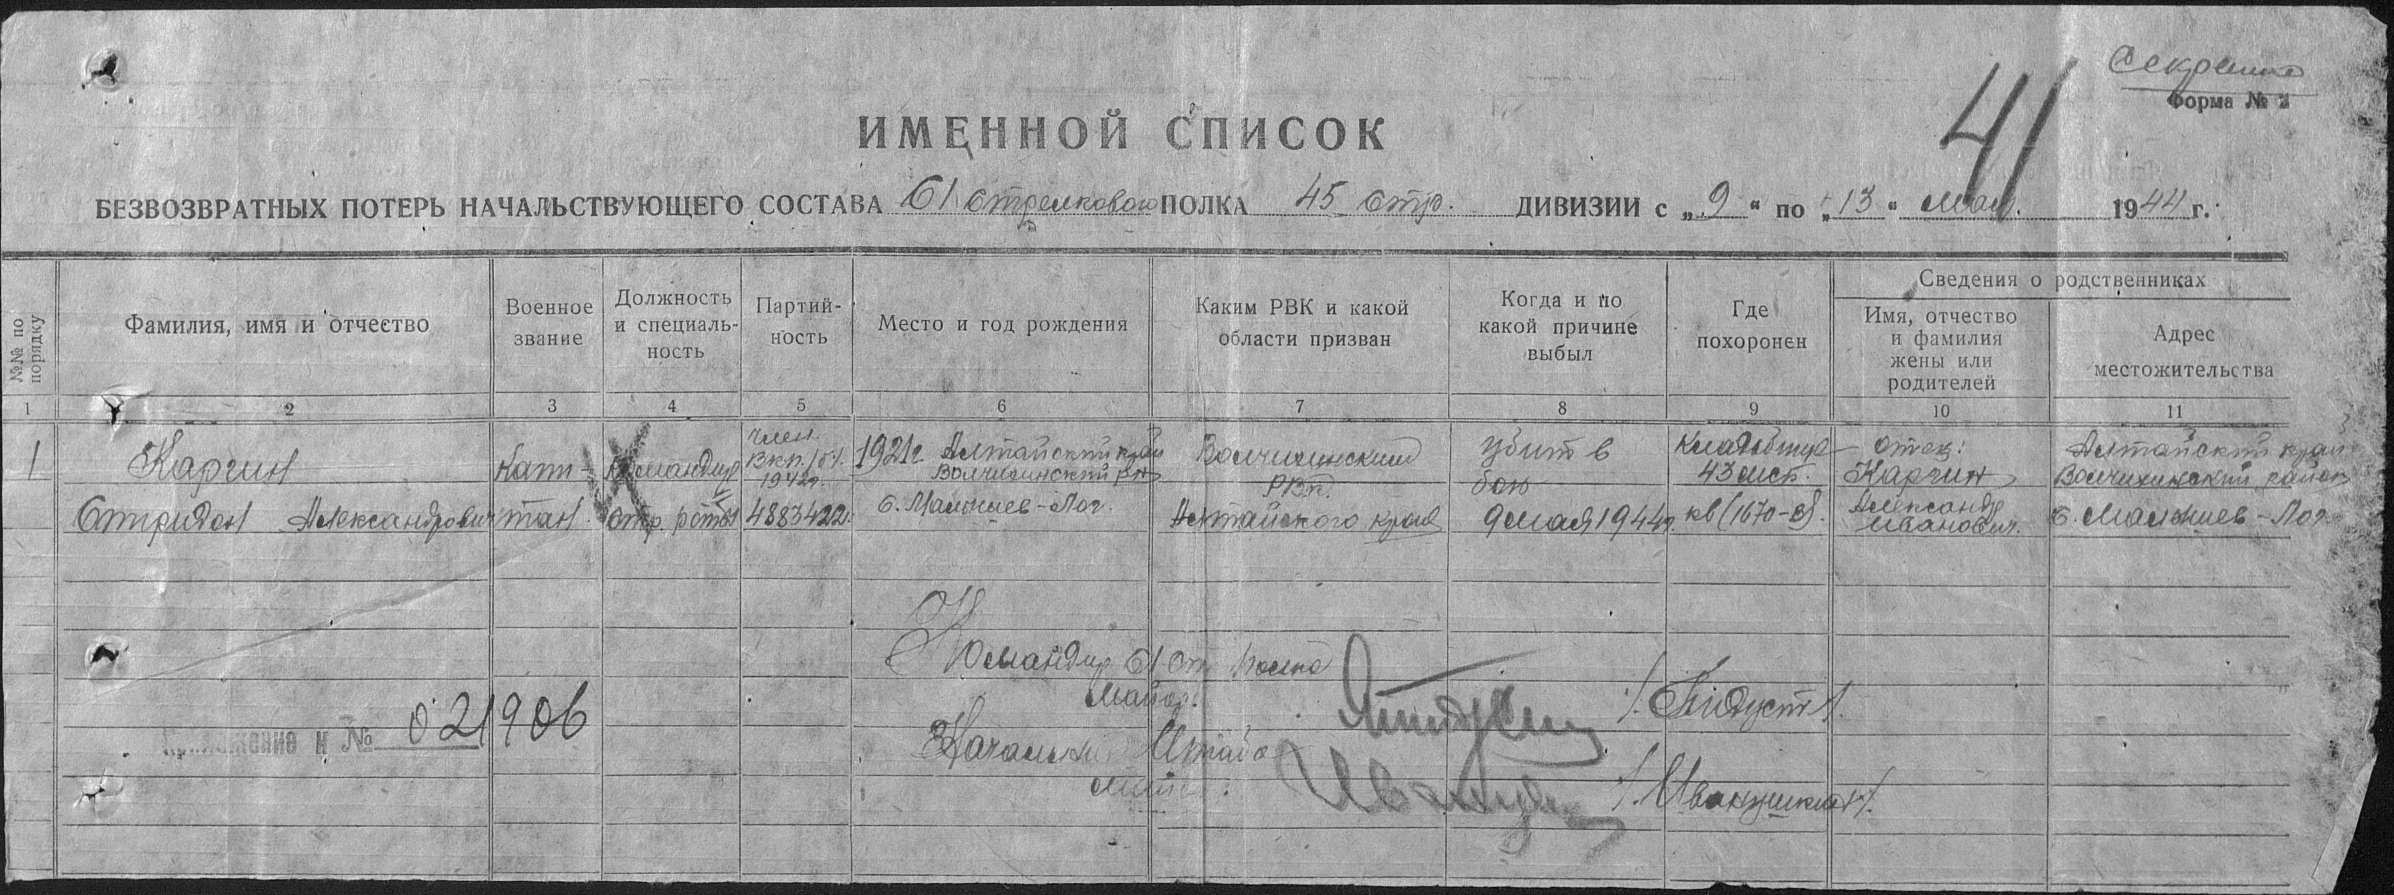 Секретно
Форма № 2
41
ИМЕННОЙ СПИСОК
БЕЗВОЗВРАТНЫХ ПОТЕРЬ НАЧАЛЬСТВУЮЩЕГО СОСТАВА 61 стрелкового ПОЛКА 45 стр. ДИВИЗИИ с „9“ по „13“ мая 1944 г.
№№ по порядку
Фамилия, имя и отчество
Военное
звание
Должность
и специаль-
ность
Партий-
ность
Место и год рождения
Каким РВК и какой
области призван
Когда и по
какой причине
выбыл
Где
похоронен
Сведения о родственниках
Имя, отчество
и фамилия
жены или
родителей
Адрес
местожительства
1 2 3 4 5 6 7 8 9 10 11
1
Каргин
Александрович
Капи-
тан
Командир
стр. роты
член
ВКП(б)
1942г.
4883422
1921г. Алтайский край
Волчихинский р-н
с. Малышев-Лог.
Волчихинский
РВК.
Алтайского края
Убит в
бою
9 мая 1944г.
Кладбище
43 лист.
кв (1670-
отец:
Каргин
Александр
Иванович.
Алтайский край
Волчихинский район
с. Малышев-Лог
Командир 61 стр полка
Майор
Начальник Штаба
/Иванушкин/
№ 021906